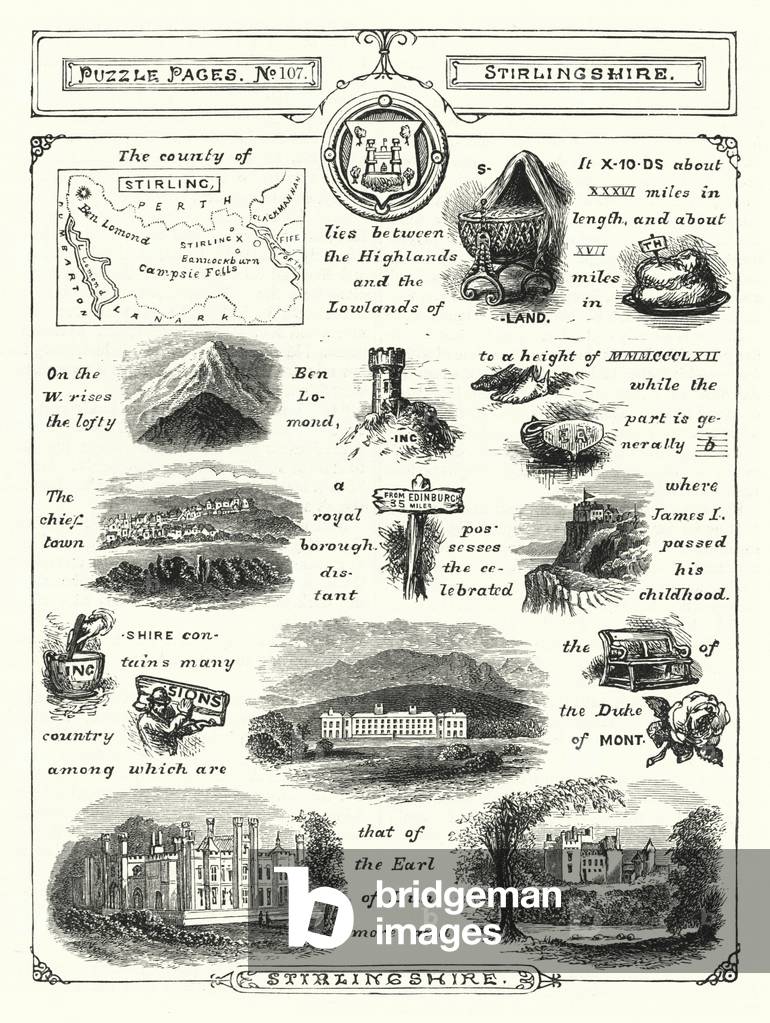 PUZZLE PAGES. No 107.
STIRLINGSHIRE.
The county of
STIRLING,
PERTH
CLACKMANNAN
Ben Lomond
STIRLING X
FIFE
Bannockburn
FORTH
Campsie Falls
DUMBARTON
Lomond
LANARK
lies between
the Highlands
and the
Lowlands of
S-
-LAND.
It X-10-DS about
XXXVI miles in
length, and about
XVII
miles
in
TH
On the
W. rises
the lofty
Ben
Lo-
mond,
-ING
to a height of MMMCCCLXII
while the
EA
part is ge-
nerally b
The
chief
town
a
royal
borough.
dis-
tant
FROM EDINBURGH
35 MILES
pos-
sesses
the ce-
lebrated
where
James I.
passed
his
childhood.
LING
-SHIRE con-
tains many
SIONS
country
among which are
the
of
the Duke
of MONT.
that of
the Earl
of
more
bridgeman
images
b
STIRLINGSHIRE.